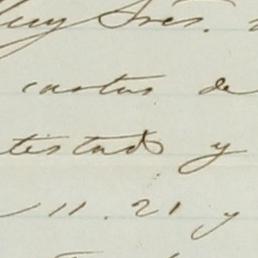 Muy Sres.
cartas de
testado y
11.21 y